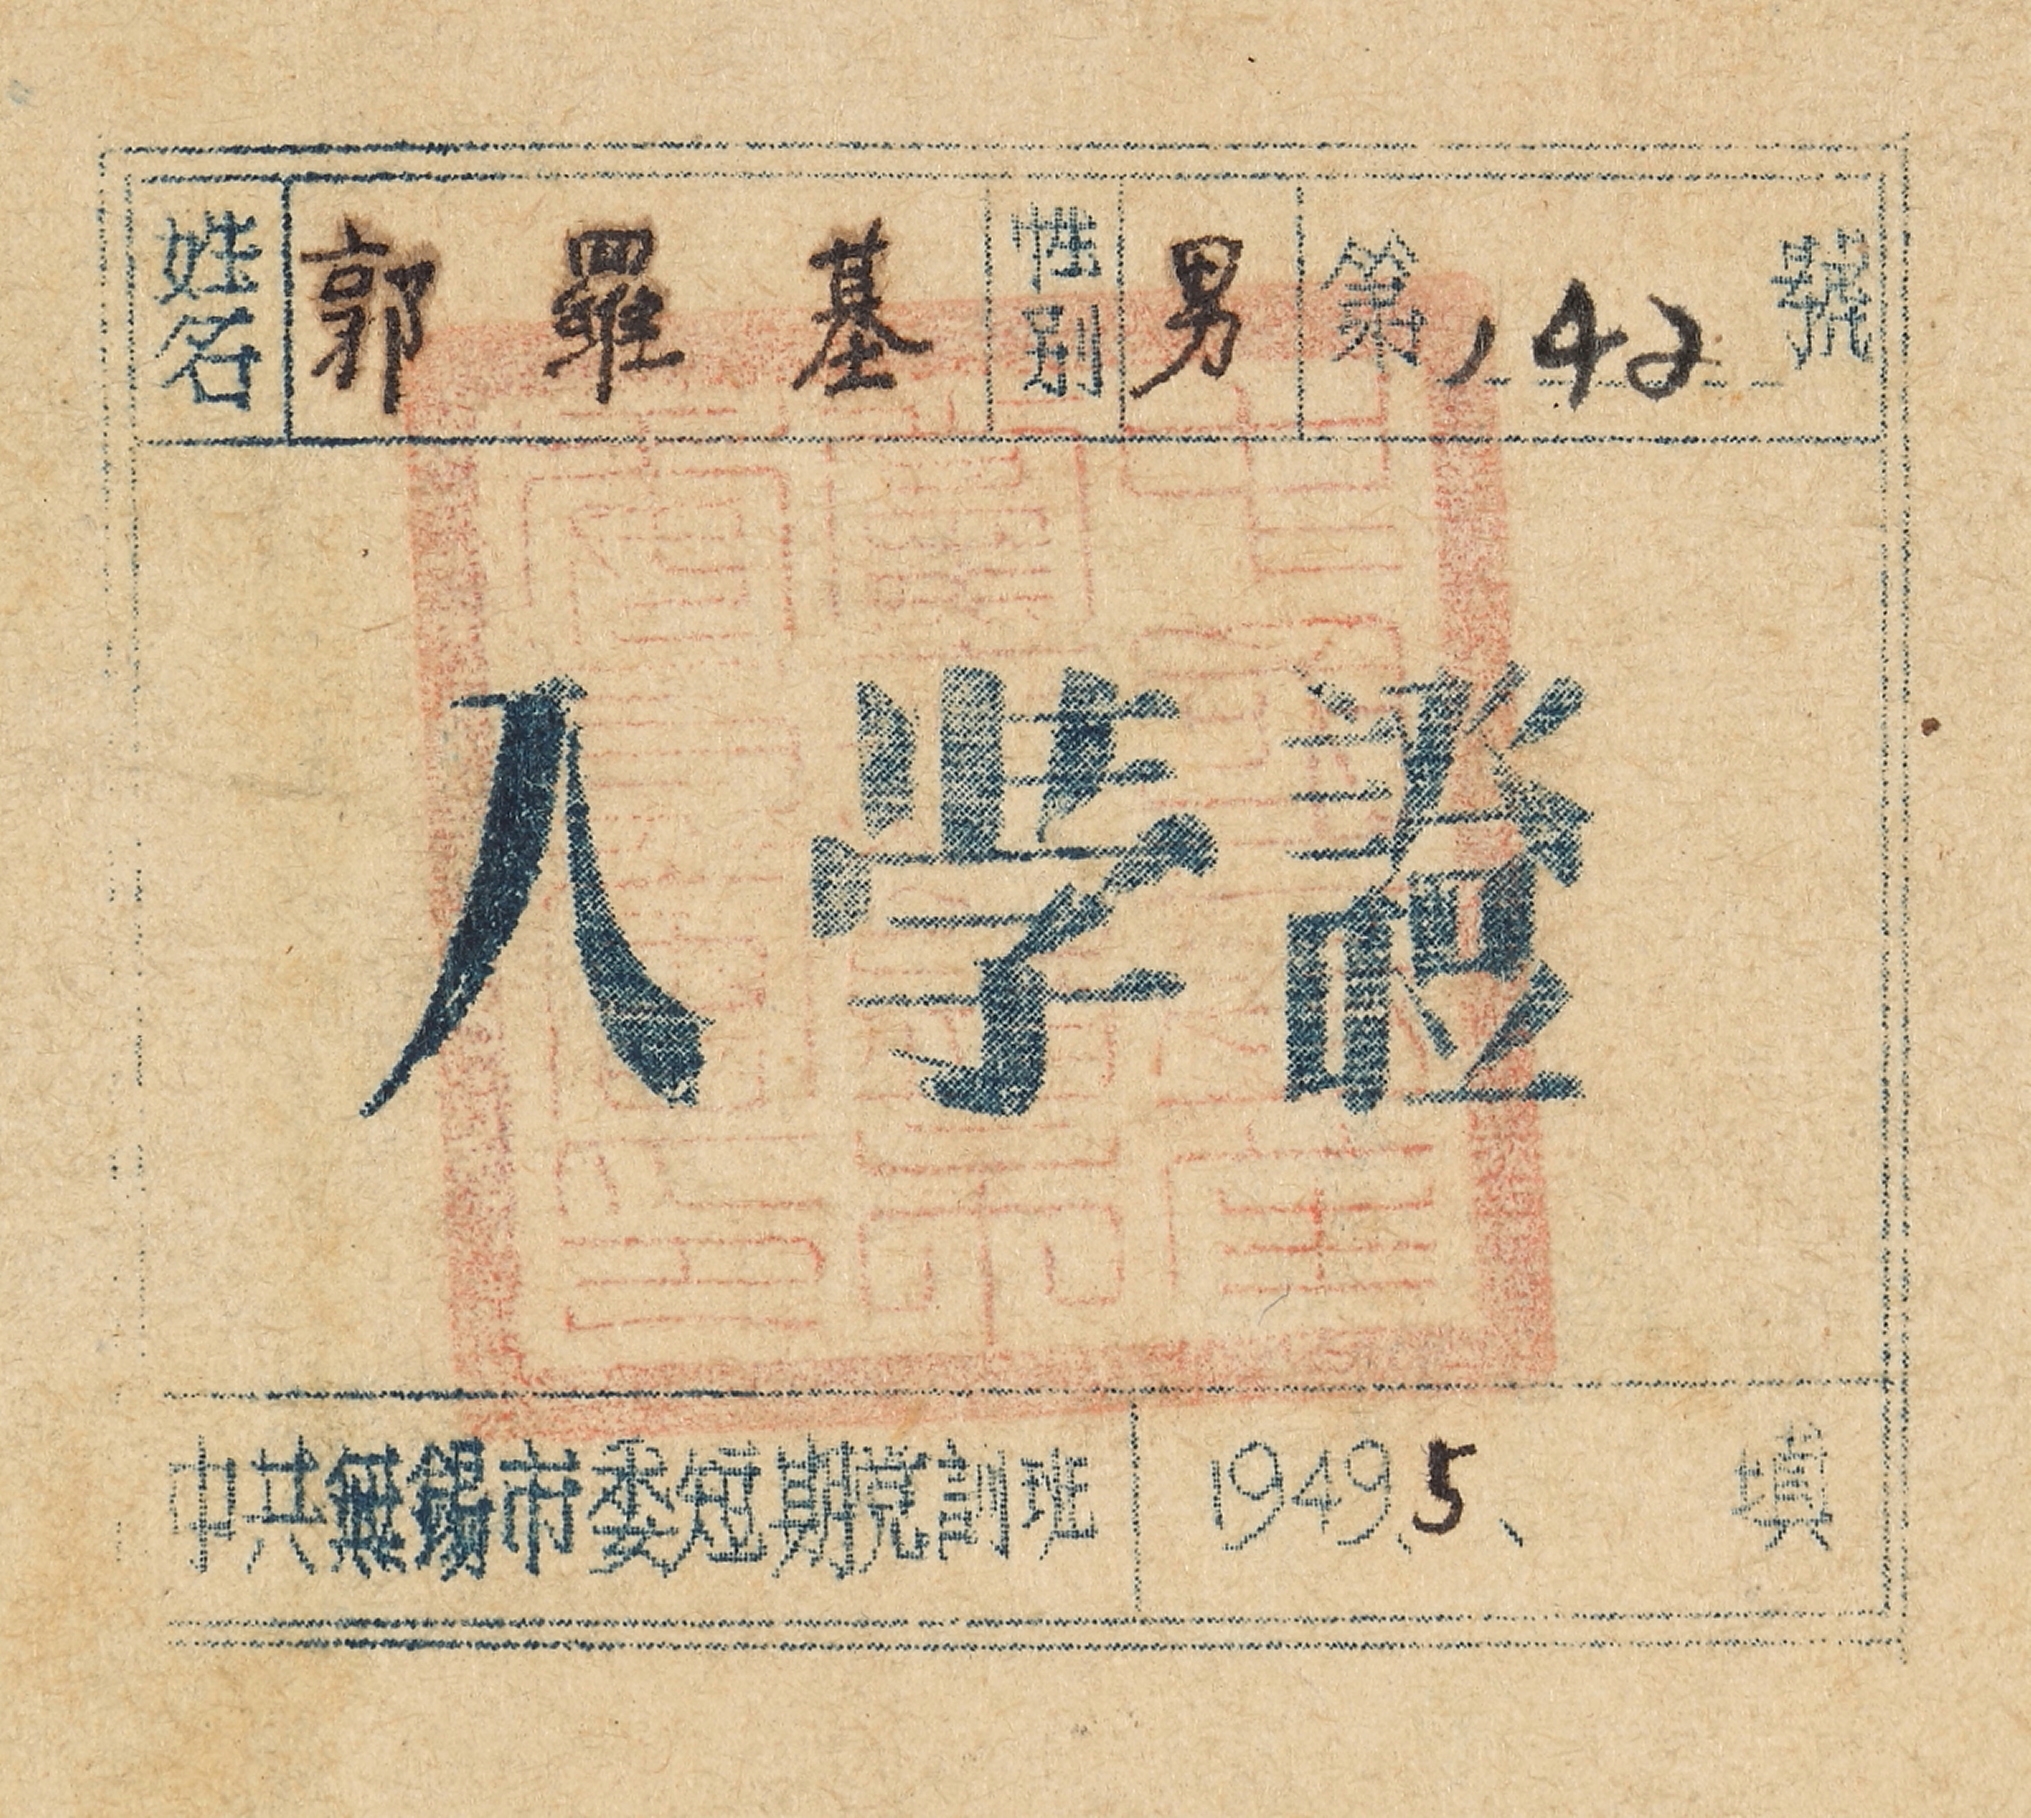 姓名 郭羅基 性别 男 第142號
入学證
中共無錫市委短期党訓班 1949、5、 填